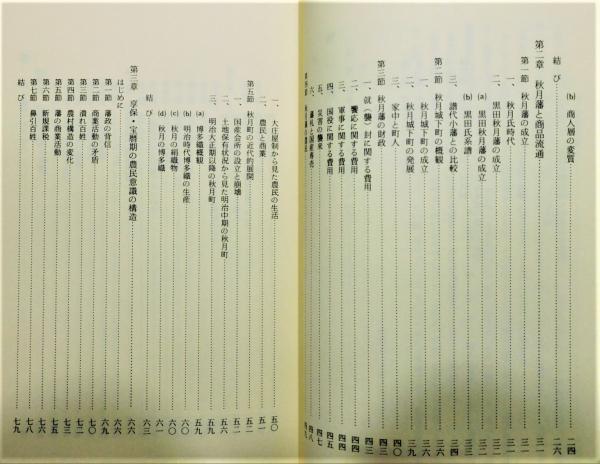 (b) 商人層の変質 二四
結び 二六
第二章 秋月藩と商品流通 三一
第一節 秋月藩の成立 三一
一、秋月氏時代 三一
二、黒田秋月藩の成立 三二
(a) 黒田秋月藩の成立 三二
(b) 黒田氏系譜 三三
三、譜代小藩との比較 三四
第二節 秋月城下町の概観 三六
一、秋月城下町の成立 三六
二、秋月城下町の発展 三九
三、家中と町人 四〇
第三節 秋月藩の財政 四三
一、就(襲)封に関する費用 四三
二、饗応に関する費用 四四
三、軍事に関する費用 四四
四、国役に関する費用 四五
五、災害の襲来 四七
六、藩札と国産専売 四八
一、大庄屋制から見た農民の生活 五〇
二、農民と商業 五一
第五節 秋月町の近代的展開 五二
一、国産会所の設立と崩壊 五二
二、土地保有状況から見た明治中期の秋月町
三、明治大正期以降の秋月町 五九
(a) 博多織概観 五九
(b) 明治時代博多織の生産 六〇
(c) 秋月の絹織物 六〇
(d) 秋月の博多織 六一
結び 六三
第三章 享保・宝暦期の農民意識の構造 六六
はじめに 六六
第一節 藩政の背信 六九
第二節 商業活動の矛盾 七〇
第三節 潰れ百姓 七二
第四節 農村構造の変化 七三
第五節 藩の商業活動 七五
第六節 新規課税 七六
第七節 鼻引百姓 七八
結び 七九